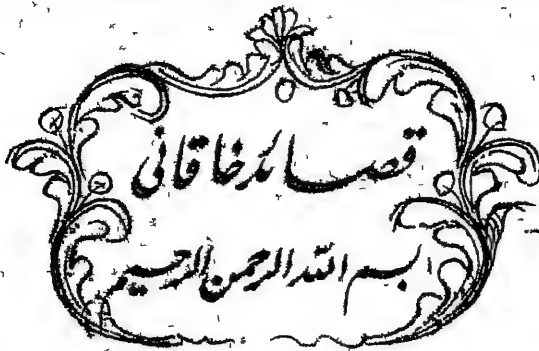 قصائد خاقانی
بسم اللہ الرحمن الرحیم